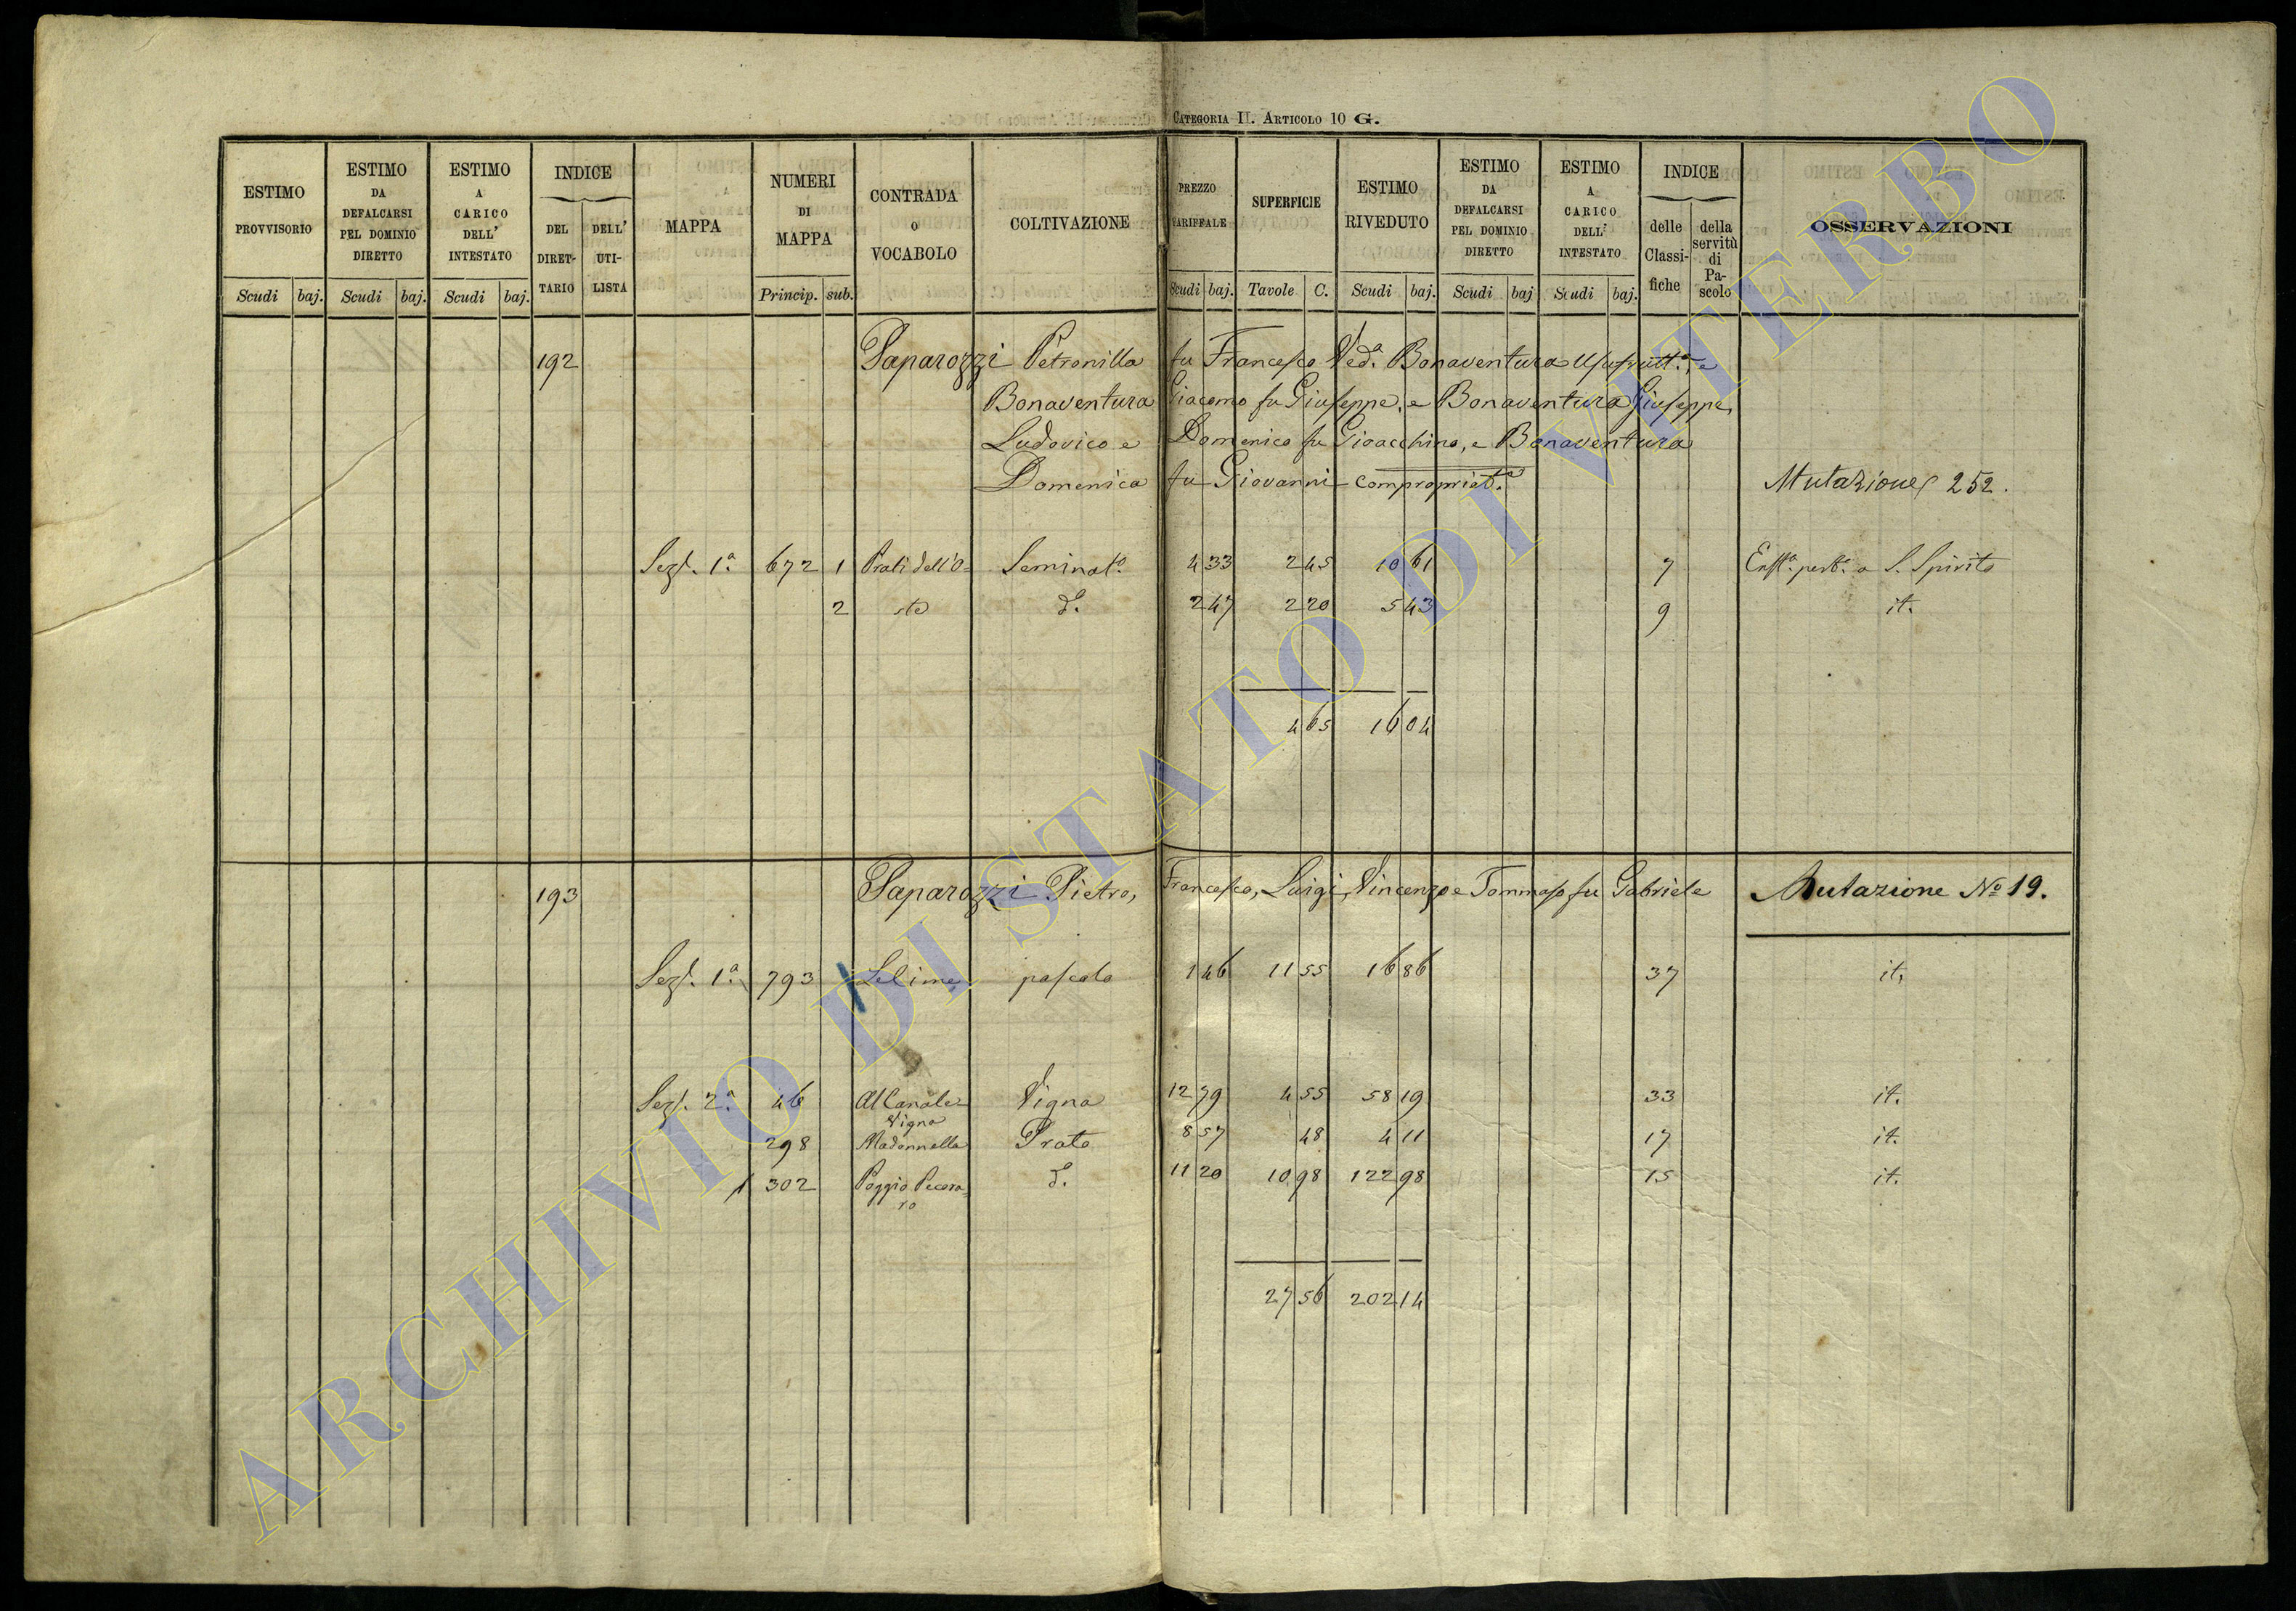 CATEGORIA II. ARTICOLO 10 G.
ESTIMO PROVVISORIO Scudi baj.
ESTIMO DA DEFALCARSI PEL DOMINIO DIRETTO Scudi baj.
ESTIMO A CARICO DELL' INTESTATO Scudi baj.
INDICE DEL DIRET-TARIO DELL' UTI-LISTA
MAPPA
NUMERI DI MAPPA Princip. sub.
CONTRADA O VOCABOLO
COLTIVAZIONE
PREZZO TARIFFALE Scudi baj.
SUPERFICIE Tavole C.
ESTIMO RIVEDUTO Scudi baj.
ESTIMO DA DEFALCARSI PEL DOMINIO DIRETTO Scudi baj
ESTIMO A CARICO DELL' INTESTATO Scudi baj.
INDICE delle Classi-fiche della servitù di Pa-scolo
OSSERVAZIONI
192 Paparozzi Petronilla fu Francesco Ved.ª Bonaventura Usufrutt.ª, e
Bonaventura Giacomo fu Giuseppe, e Bonaventura Giuseppe,
Ludovico e Domenico fu Gioacchino, e Bonaventura
Domenica fu Giovanni compropriet.
Mutazione 252.
Sez. 1ª 672 1 Prati dell'O- Seminat.º 4 33 2 45 10 61 7 Enft.ª perp.ª a S. Spirito
2 sto d.º 2 47 2 20 5 43 9 it.
4 65 16 04
193 Paparozzi Pietro, Francesco, Luigi, Vincenzo e Tommaso fu Gabriele Mutazione Nº 19.
Sez. 1ª 793 Lelime pascolo 1 46 11 55 16 86 37 it.
Sez. 2ª 46 Al Canale Vigna 12 79 4 55 58 19 33 it.
298 Vigna Madonnella Prato 8 57 48 4 11 17 it.
302 Poggio Pecora- d.º 11 20 10 98 122 98 15 it.
ro
27 56 202 14
ARCHIVIO DI STATO DI VITERBO